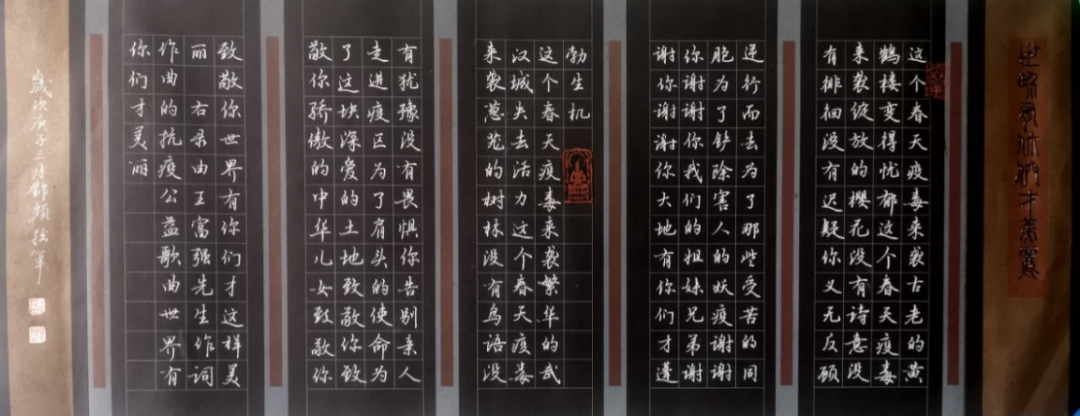 世界有你们才美丽
这个春天疫毒来袭古老的黄
鹤楼变得忧郁这个春天疫毒
来袭绽放的樱花没有诗意没
有徘徊没有迟疑你义无反顾
逆行而去为了那些受苦的同
胞为了铲除害人的妖疫谢谢
你谢谢你我们的姐妹兄弟谢
谢你谢谢你大地有你们才蓬
勃生机
这个春天疫毒来袭繁华的武
汉城失去活力这个春天疫毒
来袭葱茏的树林没有鸟语没
有犹豫没有畏惧你告别亲人
走进疫区为了肩头的使命为
了这块深爱的土地致敬你致
敬你骄傲的中华儿女致敬你
致敬你世界有你们才这样美
丽 右录由王富强先生作词
作曲的抗疫公益歌曲世界有
你们才美丽
歲次庚子三月鄧頻拙筆